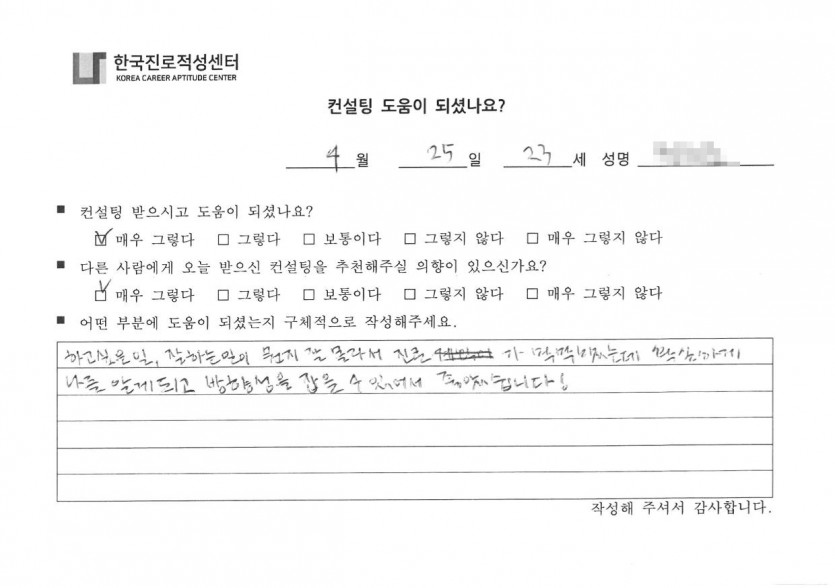 한국진로적성센터
KOREA CAREER APTITUDE CENTER
컨설팅 도움이 되셨나요?
4 월 25 일 23 세 성명
■ 컨설팅 받으시고 도움이 되셨나요?
☑ 매우 그렇다 □ 그렇다 □ 보통이다 □ 그렇지 않다 □ 매우 그렇지 않다
■ 다른 사람에게 오늘 받으신 컨설팅을 추천해주실 의향이 있으신가요?
☑ 매우 그렇다 □ 그렇다 □ 보통이다 □ 그렇지 않다 □ 매우 그렇지 않다
■ 어떤 부분에 도움이 되셨는지 구체적으로 작성해주세요.
하고싶은일, 잘하는일이 뭔지 잘 몰라서 진로 가 막막했었는데
나를 알게되고 방향성을 잡을 수 있어서 좋았습니다!
작성해 주셔서 감사합니다.